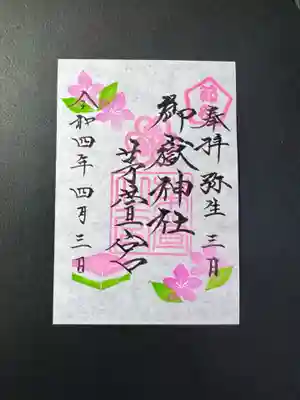 奉拝 弥生 三月
御嶽神社
茅萱宮
令和四年 四月 三日